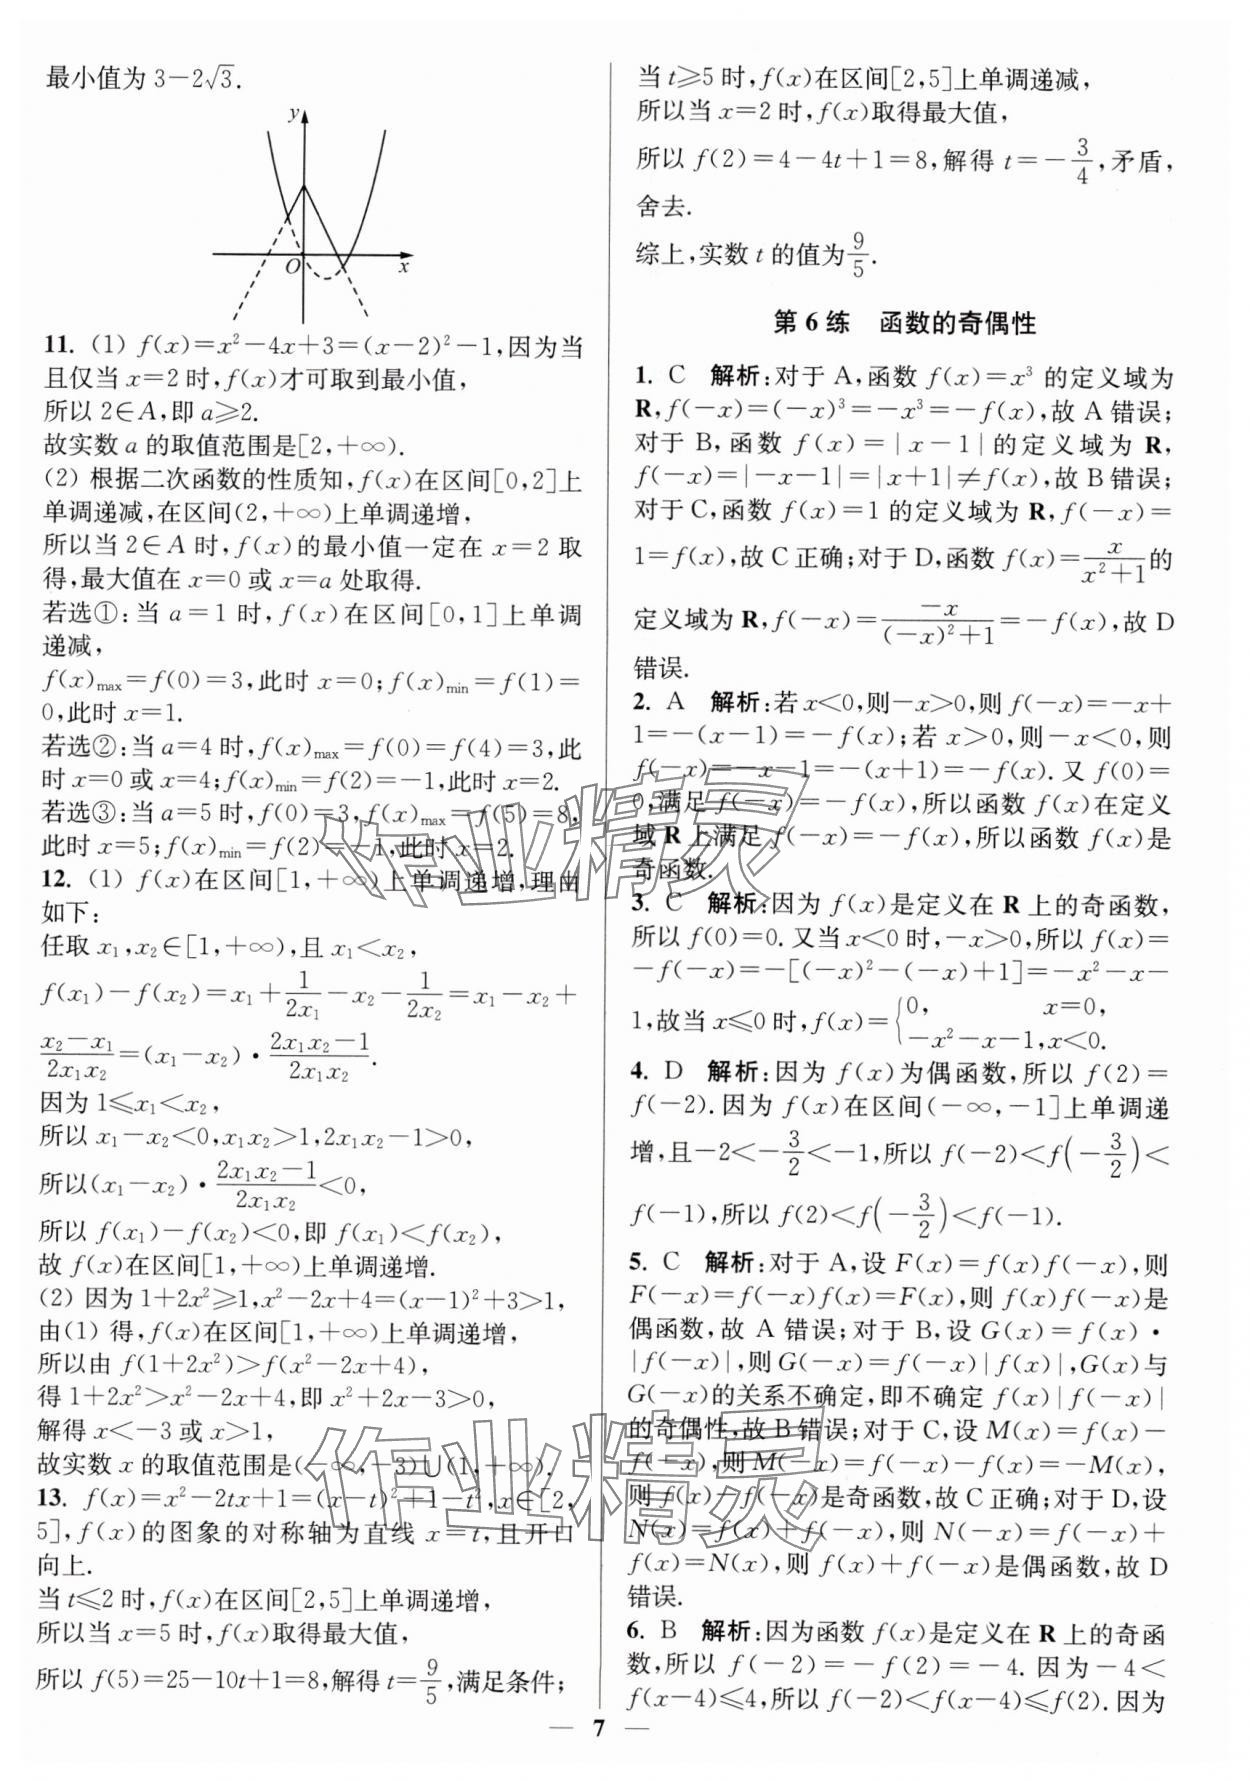 最小值为 3－2√3.
y
O
x
11. (1) f(x)=x²－4x＋3=(x－2)²－1,因为当
且仅当 x=2 时,f(x)才可取到最小值,
所以 2∈A,即 a≥2.
故实数 a 的取值范围是[2,＋∞).
(2) 根据二次函数的性质知,f(x)在区间[0,2]上
单调递减,在区间(2,＋∞)上单调递增,
所以当 2∈A 时,f(x)的最小值一定在 x=2 取
得,最大值在 x=0 或 x=a 处取得.
若选①:当 a=1 时,f(x)在区间[0,1]上单调
递减,
f(x)max=f(0)=3,此时 x=0;f(x)min=f(1)=
0,此时 x=1.
若选②:当 a=4 时,f(x)max=f(0)=f(4)=3,此
时 x=0 或 x=4;f(x)min=f(2)=－1,此时 x=2.
若选③:当 a=5 时,f(0)=3,f(x)max=f(5)=8,
此时 x=5;f(x)min=f(2)=－1,此时 x=2.
12. (1) f(x)在区间[1,＋∞)上单调递增,理由
如下:
任取 x₁,x₂∈[1,＋∞),且 x₁<x₂,
f(x₁)－f(x₂)=x₁＋1/(2x₁)－x₂－1/(2x₂)=x₁－x₂＋
(x₂－x₁)/(2x₁x₂)=(x₁－x₂)·(2x₁x₂－1)/(2x₁x₂).
因为 1≤x₁<x₂,
所以 x₁－x₂<0,x₁x₂>1,2x₁x₂－1>0,
所以(x₁－x₂)·(2x₁x₂－1)/(2x₁x₂)<0,
所以 f(x₁)－f(x₂)<0,即 f(x₁)<f(x₂),
故 f(x)在区间[1,＋∞)上单调递增.
(2) 因为 1＋2x²≥1,x²－2x＋4=(x－1)²＋3>1,
由(1) 得,f(x)在区间[1,＋∞)上单调递增,
所以由 f(1＋2x²)>f(x²－2x＋4),
得 1＋2x²>x²－2x＋4,即 x²＋2x－3>0,
解得 x<－3 或 x>1,
故实数 x 的取值范围是(－∞,－3)∪(1,＋∞).
13. f(x)=x²－2tx＋1=(x－t)²＋1－t²,x∈[2,
5],f(x)的图象的对称轴为直线 x=t,且开口
向上.
当 t≤2 时,f(x)在区间[2,5]上单调递增,
所以当 x=5 时,f(x)取得最大值,
所以 f(5)=25－10t＋1=8,解得 t=9/5,满足条件;
当 t≥5 时,f(x)在区间[2,5]上单调递减,
所以当 x=2 时,f(x)取得最大值,
所以 f(2)=4－4t＋1=8,解得 t=－3/4,矛盾,
舍去.
综上,实数 t 的值为 9/5.
第 6 练 函数的奇偶性
1. C 解析:对于 A,函数 f(x)=x³ 的定义域为
R,f(－x)=(－x)³=－x³=－f(x),故 A 错误;
对于 B,函数 f(x)=|x－1|的定义域为 R,
f(－x)=|－x－1|=|x＋1|≠f(x),故 B 错误;
对于 C,函数 f(x)=1 的定义域为 R,f(－x)=
1=f(x),故 C 正确;对于 D,函数 f(x)=x/(x²＋1)的
定义域为 R,f(－x)=－x/((－x)²＋1)=－f(x),故 D
错误.
2. A 解析:若 x<0,则－x>0,则 f(－x)=－x＋
1=－(x－1)=－f(x);若 x>0,则－x<0,则
f(－x)=－x－1=－(x＋1)=－f(x).又 f(0)=
0,满足 f(－x)=－f(x),所以函数 f(x)在定义
域 R 上满足 f(－x)=－f(x),所以函数 f(x)是
奇函数.
3. C 解析:因为 f(x)是定义在 R 上的奇函数,
所以 f(0)=0.又当 x<0 时,－x>0,所以 f(x)=
－f(－x)=－[(－x)²－(－x)＋1]=－x²－x－
1,故当 x≤0 时,f(x)={0, x=0, －x²－x－1,x<0.
4. D 解析:因为 f(x)为偶函数,所以 f(2)=
f(－2).因为 f(x)在区间(－∞,－1]上单调递
增,且－2<－3/2<－1,所以 f(－2)<f(－3/2)<
f(－1),所以 f(2)<f(－3/2)<f(－1).
5. C 解析:对于 A,设 F(x)=f(x)f(－x),则
F(－x)=f(－x)f(x)=F(x),则 f(x)f(－x)是
偶函数,故 A 错误;对于 B,设 G(x)=f(x)·
|f(－x)|,则 G(－x)=f(－x)|f(x)|,G(x)与
G(－x)的关系不确定,即不确定 f(x)|f(－x)|
的奇偶性,故 B 错误;对于 C,设 M(x)=f(x)－
f(－x),则 M(－x)=f(－x)－f(x)=－M(x),
则 f(x)－f(－x)是奇函数,故 C 正确;对于 D,设
N(x)=f(x)＋f(－x),则 N(－x)=f(－x)＋
f(x)=N(x),则 f(x)＋f(－x)是偶函数,故 D
错误.
6. B 解析:因为函数 f(x)是定义在 R 上的奇函
数,所以 f(－2)=－f(2)=－4. 因为－4<
f(x－4)≤4,所以 f(－2)<f(x－4)≤f(2).因为
— 7 —
作业精灵
作业精灵